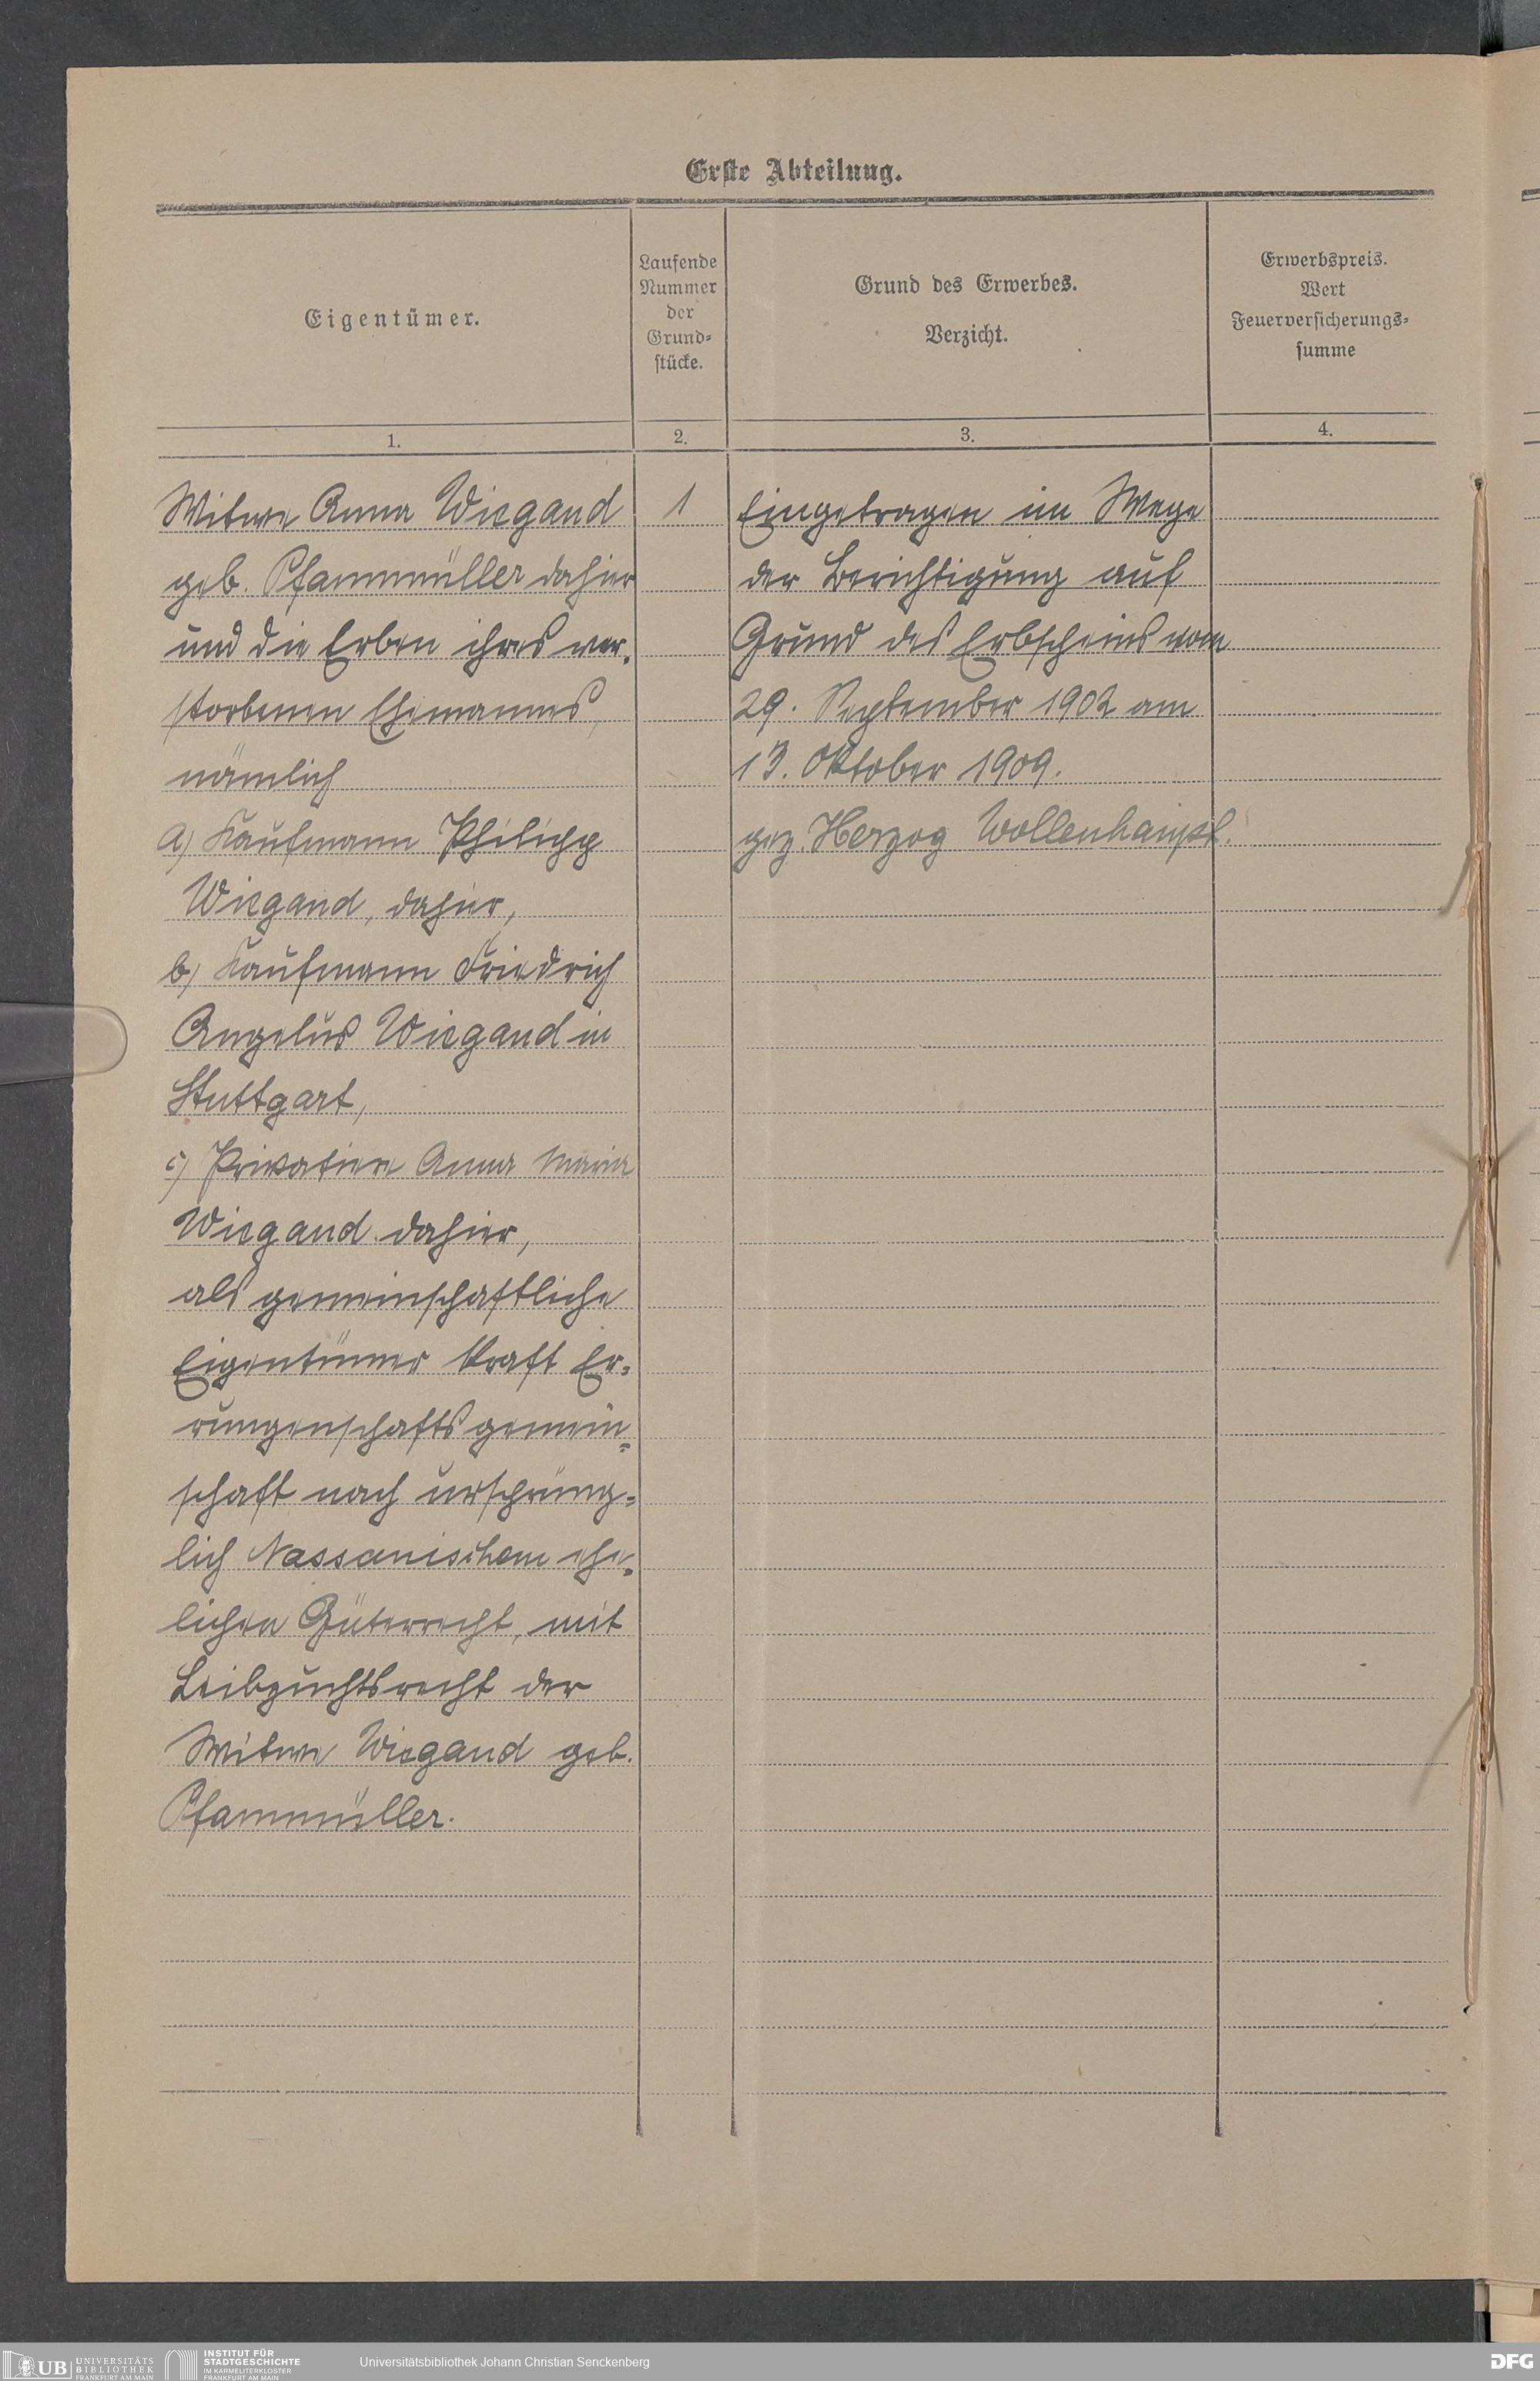 Erste Abteilung.
Eigentümer.
Laufende
Nummer
der
Grund-
stücke.
Grund des Erwerbes.
Verzicht.
Erwerbspreis.
Wert
Feuerversicherungs-
summe
1.
2.
3.
4.
Witwe Anna Wiegand
geb. Pfannmüller dahier
und die Erben ihres ver-
storbenen Ehemannes,
nämlich
a) Kaufmann Philipp
Wiegand, dahier,
b) Kaufmann Friedrich
Angelus Wiegand in
Stuttgart,
c) Privatiere Anna Maria
Wiegand dahier,
als gemeinschaftliche
Eigentümer kraft Er-
rungenschaftsgemein-
schaft nach ursprüng-
lich Nassauischem ehe-
lichen Güterrecht, mit
Leibzuchtsrecht der
Witwe Wiegand geb.
Pfannmüller.
1
Eingetragen im Wege
der Berichtigung auf
Grund des Erbscheins vom
29. September 1902 am
13. Oktober 1909.
gez. Herzog Wollenhaupt.
UB UNIVERSITÄTS
BIBLIOTHEK
FRANKFURT AM MAIN
INSTITUT FÜR
STADTGESCHICHTE
IM KARMELITERKLOSTER
FRANKFURT AM MAIN
Universitätsbibliothek Johann Christian Senckenberg
DFG